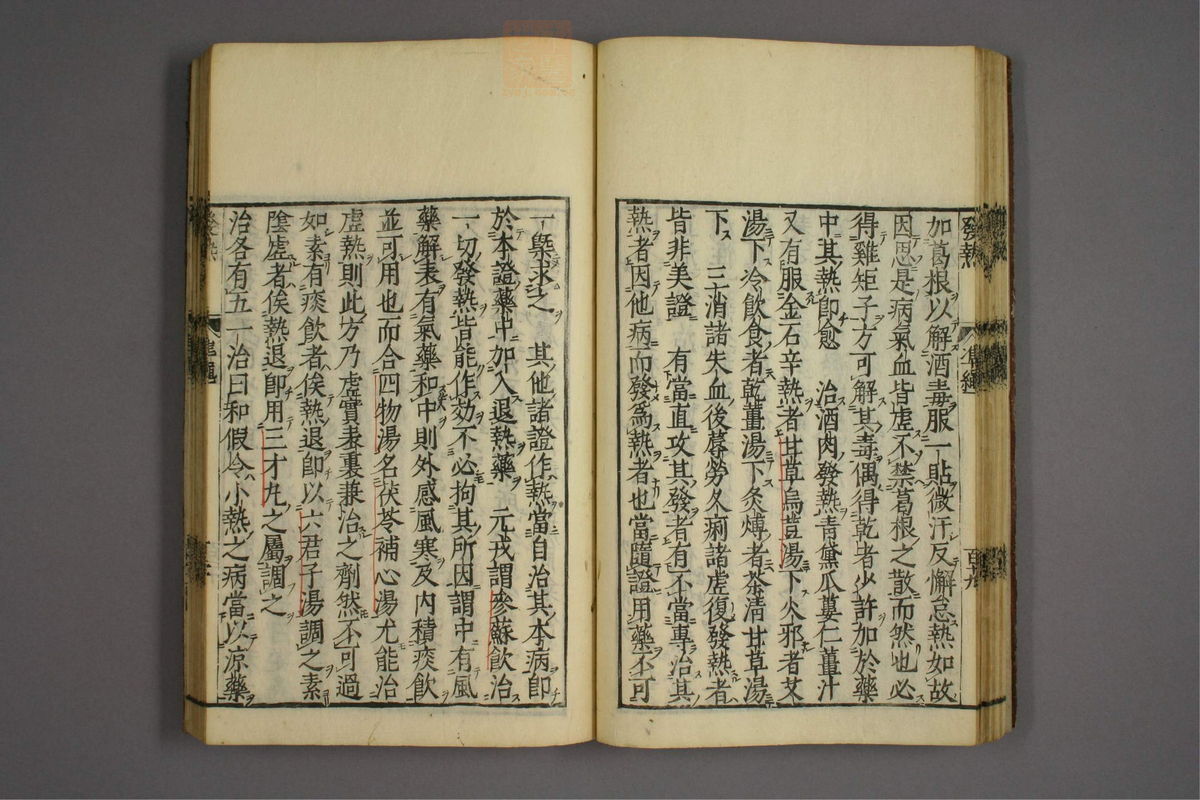 發熱
百六
如葛根以解酒毒服一貼微汗反懈怠熱如故
因思是病氣血皆虛不禁葛根之散而然也必
得雞矩子方可解其毒偶得乾者少許加於藥
中其熱即愈　治酒肉發熱青黛瓜蔞仁薑汁
又有服金石辛熱者甘草烏荳湯下火邪者艾
湯下冷飲食者乾薑湯下灸煿者茶清甘草湯
下　三消諸失血後蓐勞久痢諸虛復發熱者
皆非美證　有當直攻其發者有不當專治其
熱者因他病而發爲熱者也當隨證用藥不可
一槩求之　其他諸證作熱當自治其本病即
於本證藥中加入退熱藥　元戎謂參蘇飲治
一切發熱皆能作効不必拘其所因謂中有風
藥解表有氣藥和中則外感風寒及内積痰飲
並可用也而合四物湯名茯苓補心湯尤能治
虛熱則此方乃虛實表裏兼治之劑然不可過
如素有痰飲者俟熱退即以六君子湯調之素
陰虛者俟熱退即用三才丸之屬調之
治各有五一治曰和假令小熱之病當以涼藥